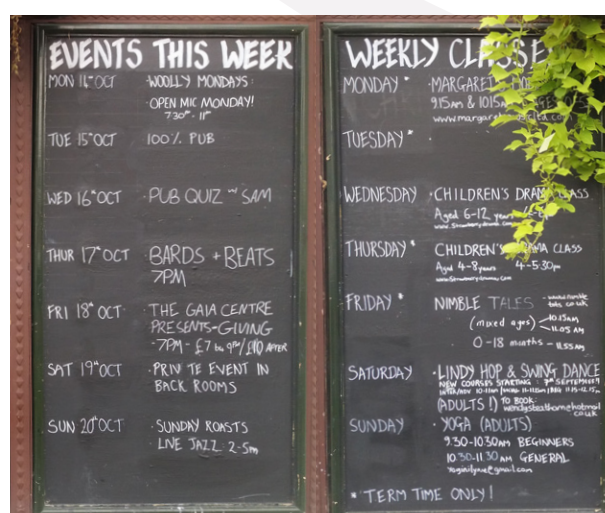 EVENTS THIS WEEK
MON 14th OCT · WOOLLY MONDAYS
· OPEN MIC MONDAY!
7.30 - 11
TUE 15th OCT 100% PUB
WED 16th OCT · PUB QUIZ w SAM
THUR 17th OCT · BARDS + BEATS
7PM
FRI 18th OCT · THE GAIA CENTRE
PRESENTS-GIVING
-7PM- £7 9PM/£10 AFTER
SAT 19th OCT · PRIV TE EVENT IN
BACK ROOMS
SUN 20th OCT · SUNDAY ROASTS
· LIVE JAZZ 2-5pm
WEEKLY CLASSE
MONDAY * · MARGARET
9.15AM & 10.15A
TUESDAY *
WEDNESDAY · CHILDREN'S DRAMA CLASS
Aged 6-12 years
THURSDAY * CHILDREN'S DRAMA CLASS
Aged 4-8 years 4-5.30pm
FRIDAY * NIMBLE TALES - www.nimble
tales.co.uk
(mixed ages) 10.15AM
11.05 AM
0-18 months - 11.55AM
SATURDAY · LINDY HOP & SWING DANCE
NEW COURSES STARTING 7th SEPTEMBER!
(ADULTS!) TO BOOK:
co.uk
SUNDAY · YOGA (ADULTS)
9.30-10.30AM BEGINNERS
10.30-11.30 AM GENERAL
* TERM TIME ONLY!